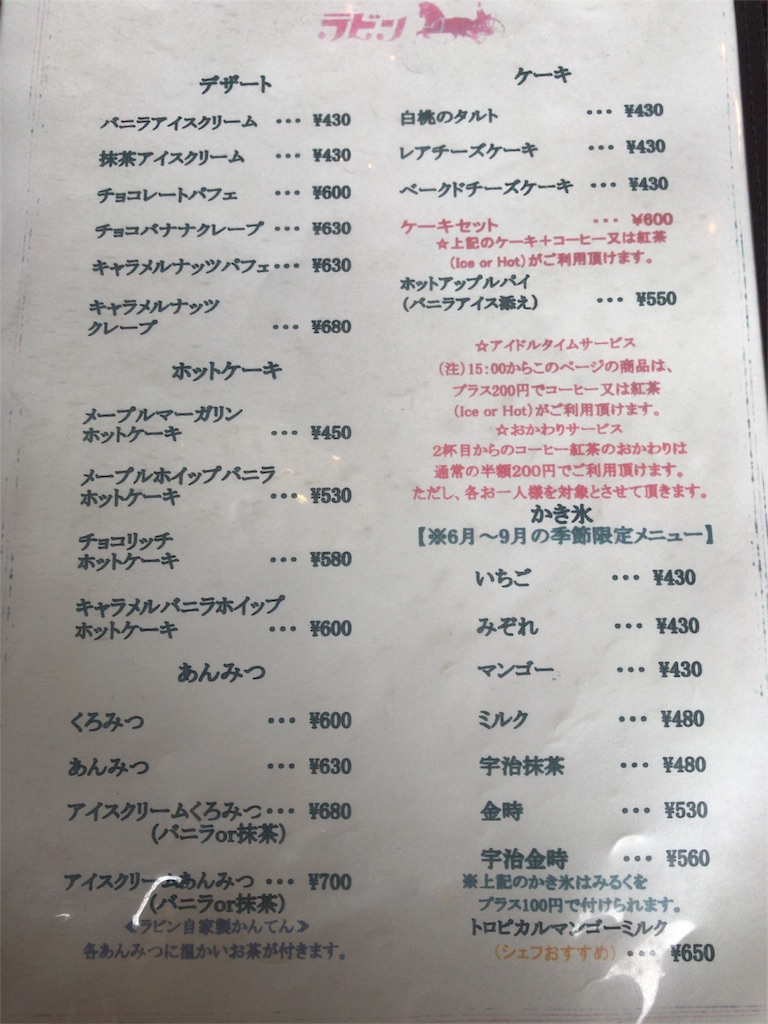 ラビン
デザート
バニラアイスクリーム ・・・ ¥430
抹茶アイスクリーム ・・・ ¥430
チョコレートパフェ ・・・ ¥600
チョコバナナクレープ ・・・ ¥630
キャラメルナッツパフェ・・・ ¥630
キャラメルナッツ
クレープ ・・・ ¥680
ホットケーキ
メープルマーガリン
ホットケーキ ・・・ ¥450
メープルホイップバニラ
ホットケーキ ・・・ ¥530
チョコリッチ
ホットケーキ ・・・ ¥580
キャラメルバニラホイップ
ホットケーキ ・・・ ¥600
あんみつ
くろみつ ・・・ ¥600
あんみつ ・・・ ¥630
アイスクリームくろみつ・・・ ¥680
(バニラor抹茶)
アイスクリームあんみつ ・・・ ¥700
(バニラor抹茶)
≪ラビン自家製かんてん≫
各あんみつに温かいお茶が付きます。
ケーキ
白桃のタルト ・・・ ¥430
レアチーズケーキ ・・・ ¥430
ベークドチーズケーキ ・・・ ¥430
ケーキセット ・・・ ¥600
☆上記のケーキ+コーヒー又は紅茶
(Ice or Hot)がご利用頂けます。
ホットアップルパイ
(バニラアイス添え) ・・・ ¥550
☆アイドルタイムサービス
(注)15:00からこのページの商品は、
プラス200円でコーヒー又は紅茶
(Ice or Hot)がご利用頂けます。
☆おかわりサービス
2杯目からのコーヒー紅茶のおかわりは
通常の半額200円でご利用頂けます。
ただし、各お一人様を対象とさせて頂きます。
かき氷
【※6月～9月の季節限定メニュー】
いちご ・・・ ¥430
みぞれ ・・・ ¥430
マンゴー ・・・ ¥430
ミルク ・・・ ¥480
宇治抹茶 ・・・ ¥480
金時 ・・・ ¥530
宇治金時 ・・・ ¥560
※上記のかき氷はみるくを
プラス100円で付けられます。
トロピカルマンゴーミルク
(シェフおすすめ) ・・・ ¥650